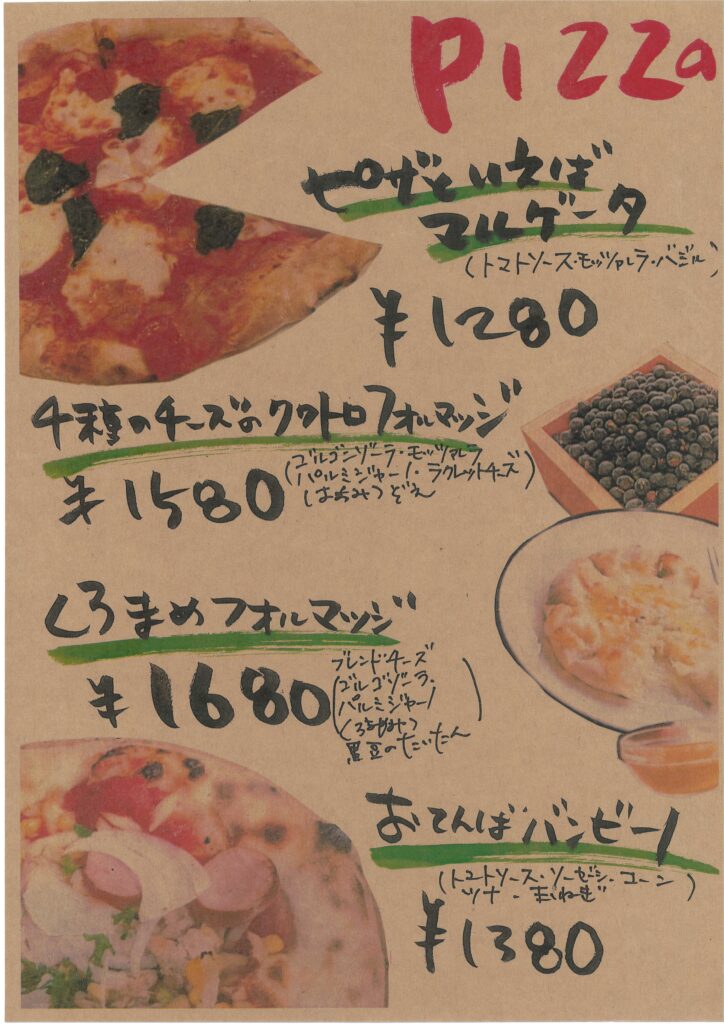 PIZZa
ピザといえば
マルゲータ
(トマトソース・モッツァレラ・バジル)
¥1280
4種のチーズのクワトロフォルマッジ
(ゴルゴンゾーラ・モッツァレラ
パルミジャーノ・ラクレットチーズ)
はちみつぞえ
¥1580
くろまめフォルマッジ
¥1680
(ブレンドチーズ
ゴルゴゾーラ・
パルミジャーノ
くろみつ)
黒豆のたいたん
おてんばバンビーノ
(トマトソース・ソーセージ・コーン
ツナ・玉ねぎ)
¥1380